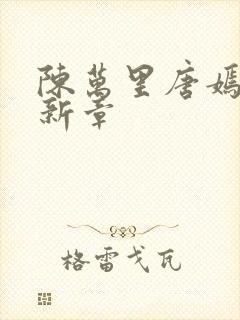 陳萬里唐嫣
新章
格雷戈瓦